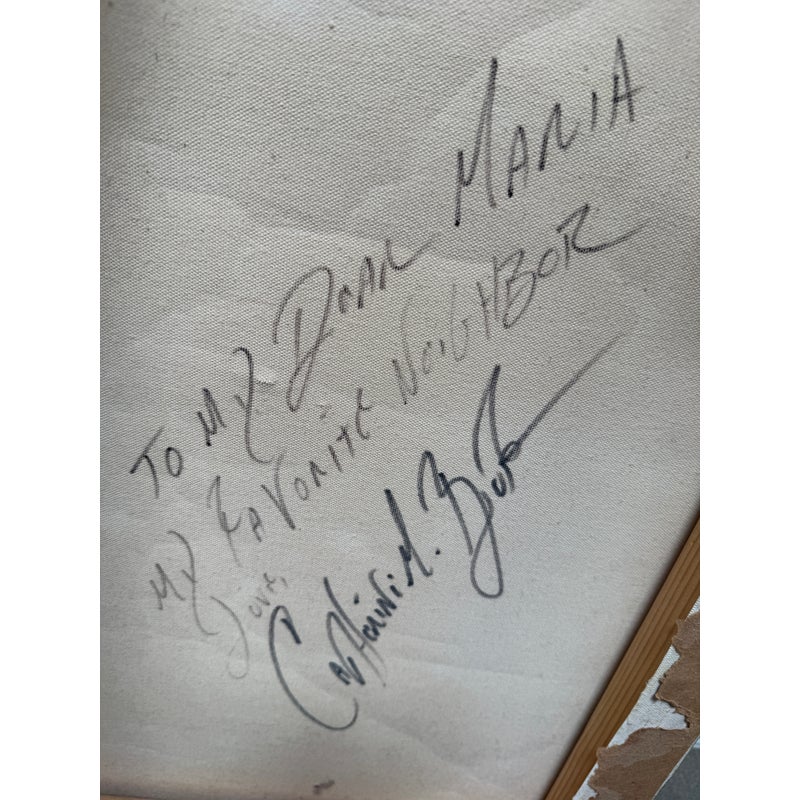 TO MY DEAR MARIA
MY FAVORITE NEIGHBOR
LOVE,
M.